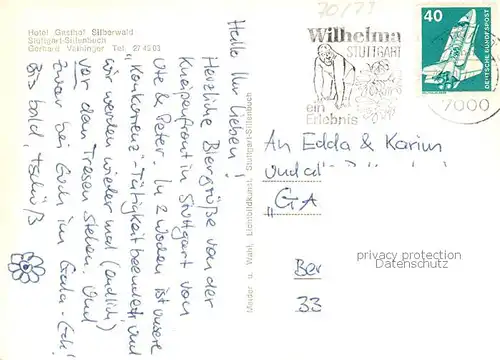 70/73
Hotel Gasthof Silberwald
Stuttgart-Sillenbuch
Gerhard Vaihinger Tel.
Hallo Ihr Lieben!
Herzliche Biergrüße von der
Kneipenfront in Stuttgart von
Ute & Peter. In 2 Wochen ist unsere
"Konkurrenz"-Tätigkeit beendet und
wir werden wieder mal (endlich)
vor dem Tresen stehen. Und
zwar bei Euch im Gada-Eck!
Bis bald, tschüß
Meider u. Wahl, Lichtbildkunst, Stuttgart-Sillenbuch
Wilhelma
STUTTGART
ein
Erlebnis
40
DEUTSCHE BUNDESPOST
7000
An Edda & Karin
und
"GA
Ber
33
privacy protection
Datenschutz